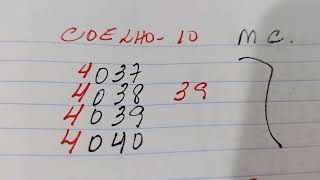 COELHO-10 M C.
4037
4038 39
4039
4040